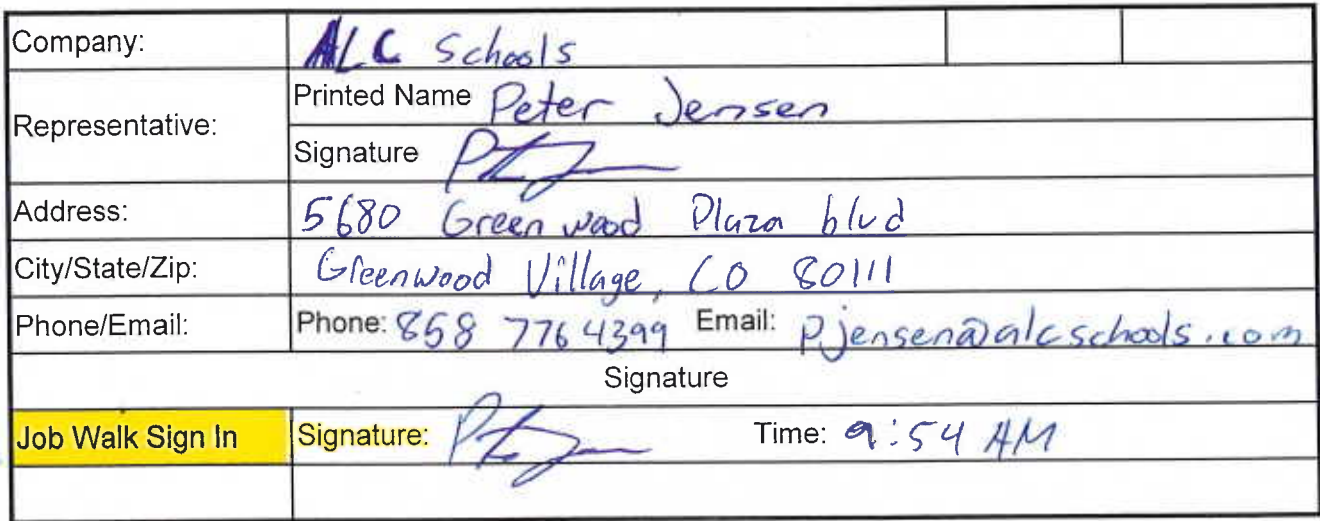 Company: ALC Schools
Representative: Printed Name Peter Jensen
Signature
Address: 5680 Greenwood Plaza blvd
City/State/Zip: Greenwood Village, CO 80111
Phone/Email: Phone: 858 776 4399 Email: pjensen@alcschools.com
Signature
Job Walk Sign In Signature: Time: 9:54 AM